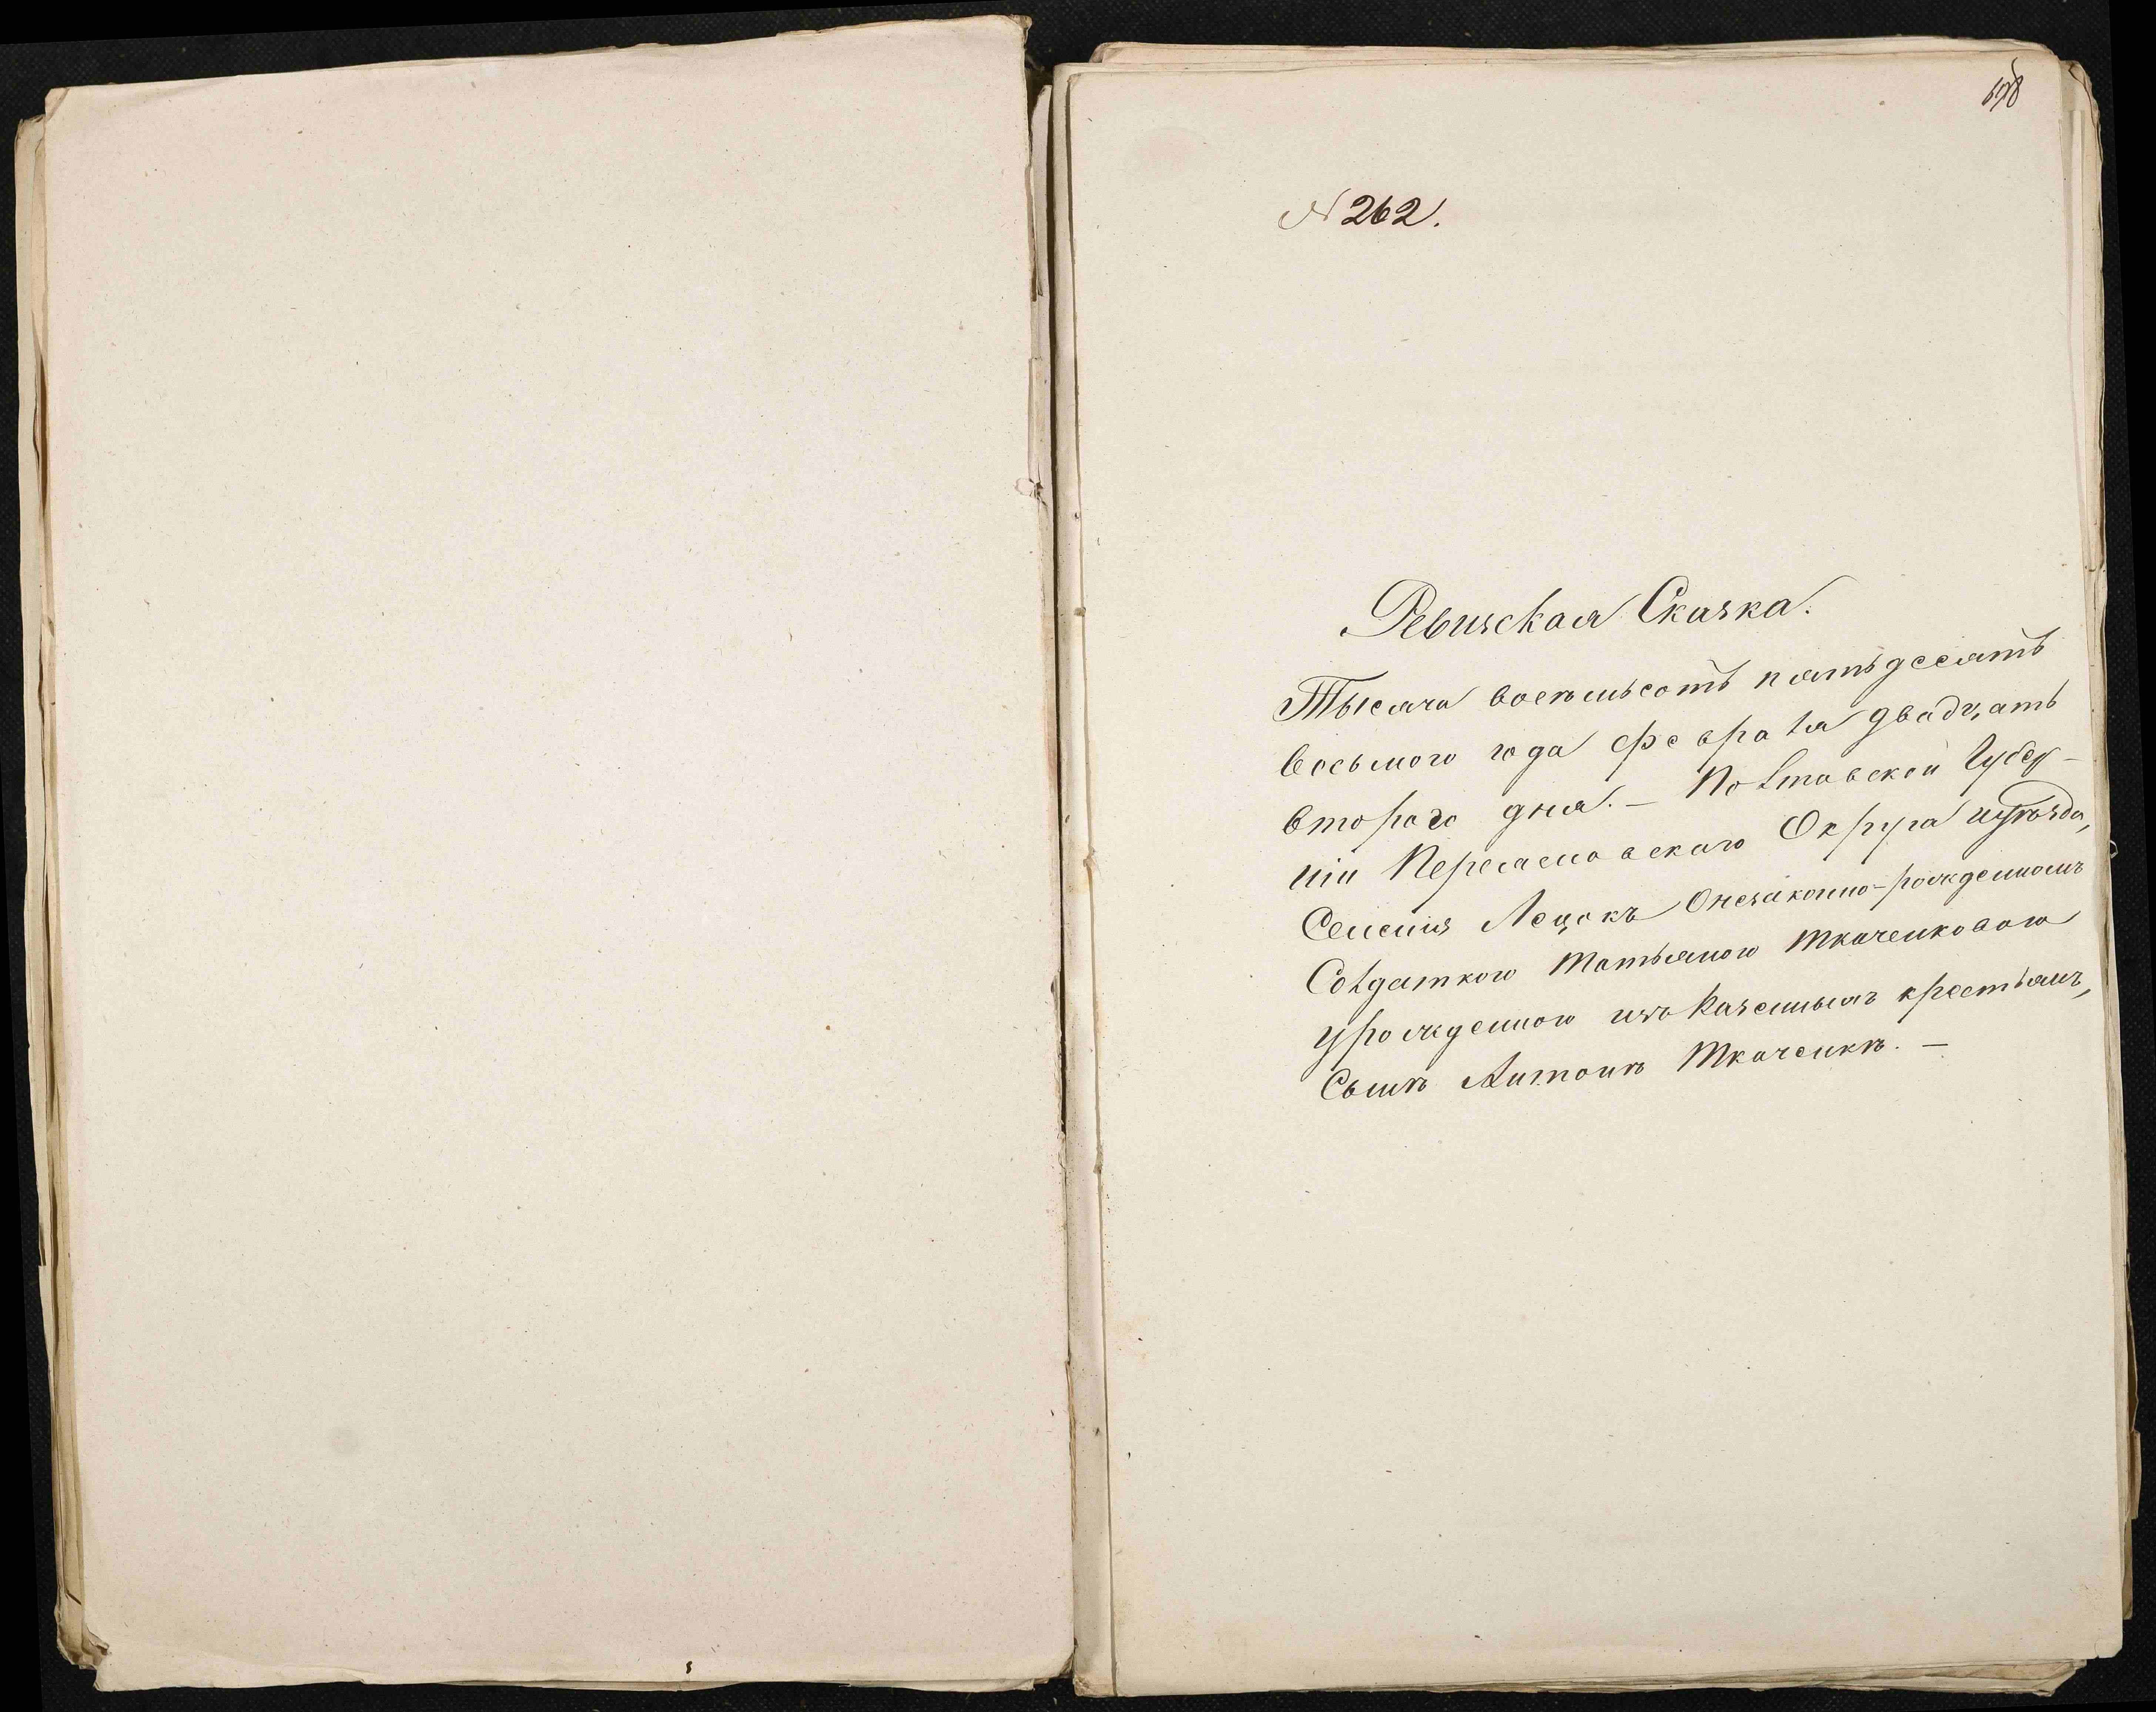 698
N 262.
Ревизская Сказка.
Тысяча восемьсотъ пятьдесятъ
восьмого года февраля двадцать
второго дня. — Полтавской Губер-
ніи Переяславскаго Округа и уѣзда,
Селенія Лецокъ О незаконно-рожденномъ
Солдаткою Татьяною Ткаченковою
урожденною изъ Казенныхъ крестьянъ,
Сынъ Антонъ Ткаченкъ. —